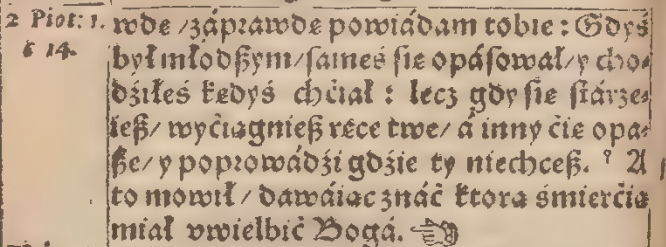 2 Piotr: 1.
ć 14.
wdę /záprawdę powiádam tobie : Gdyś
był młodßym/sameś się opásował/y cho-
dźiłeś kędyś chćiał : lecz gdy się stárze-
ieß/ wyćiągnieß ręce twe/ á inny ćię opa-
ße/ y poprowádźi gdźie ty niechceß. ⁹ A
to mowił / dawáiąc znáć ktorą śmierćią
miał vwielbić Bogá. ☜